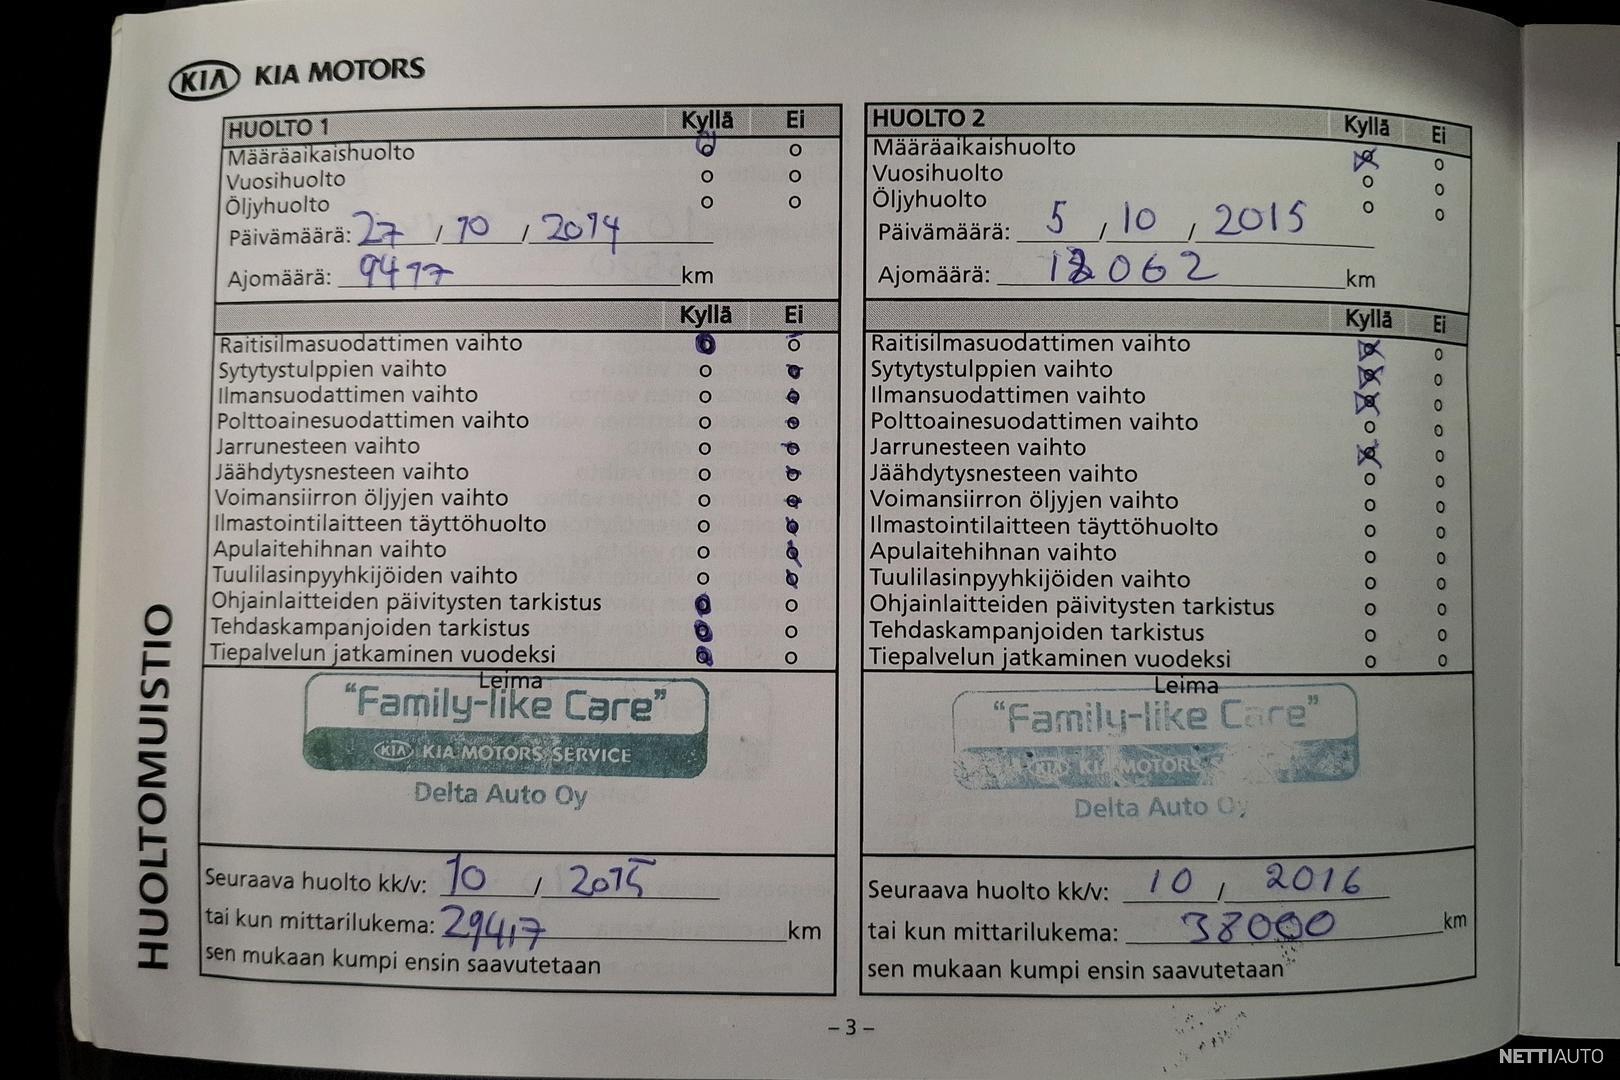 KIA KIA MOTORS
HUOLTOMUISTIO
HUOLTO 1 Kyllä Ei
Määräaikaishuolto
Vuosihuolto
Öljyhuolto
Päivämäärä: 27 / 10 / 2014
Ajomäärä: 9417 km
Kyllä Ei
Raitisilmasuodattimen vaihto
Sytytystulppien vaihto
Ilmansuodattimen vaihto
Polttoainesuodattimen vaihto
Jarrunesteen vaihto
Jäähdytysnesteen vaihto
Voimansiirron öljyjen vaihto
Ilmastointilaitteen täyttöhuolto
Apulaitehihnan vaihto
Tuulilasinpyyhkijöiden vaihto
Ohjainlaitteiden päivitysten tarkistus
Tehdaskampanjoiden tarkistus
Tiepalvelun jatkaminen vuodeksi
Leima
“Family-like Care”
KIA KIA MOTORS SERVICE
Delta Auto Oy
Seuraava huolto kk/v: 10 / 2015
tai kun mittarilukema: 29417 km
sen mukaan kumpi ensin saavutetaan
HUOLTO 2 Kyllä Ei
Määräaikaishuolto
Vuosihuolto
Öljyhuolto
Päivämäärä: 5 / 10 / 2015
Ajomäärä: km
Kyllä Ei
Raitisilmasuodattimen vaihto
Sytytystulppien vaihto
Ilmansuodattimen vaihto
Polttoainesuodattimen vaihto
Jarrunesteen vaihto
Jäähdytysnesteen vaihto
Voimansiirron öljyjen vaihto
Ilmastointilaitteen täyttöhuolto
Apulaitehihnan vaihto
Tuulilasinpyyhkijöiden vaihto
Ohjainlaitteiden päivitysten tarkistus
Tehdaskampanjoiden tarkistus
Tiepalvelun jatkaminen vuodeksi
Leima
“Family-like Care”
KIA KIA MOTORS
Delta Auto Oy
Seuraava huolto kk/v: 10 / 2016
tai kun mittarilukema: 38000 km
sen mukaan kumpi ensin saavutetaan
– 3 –
NETTIAUTO